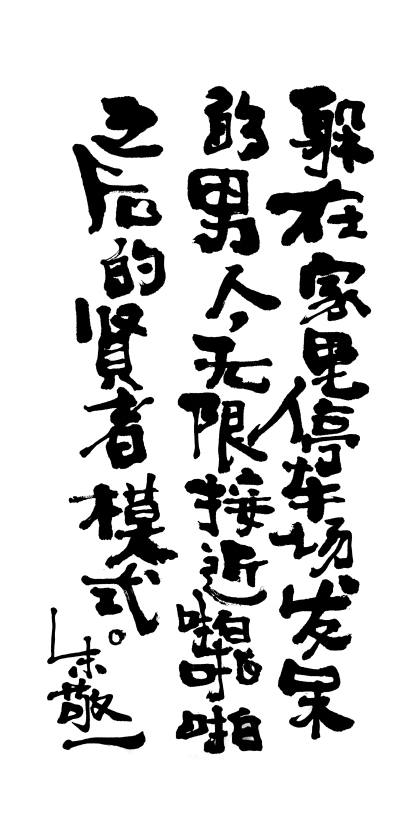 躲在家里停车场发呆
的男人，无限接近啪啪啪
之后的贤者模式。
朱敬一